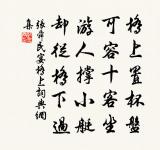 橋上置杯盤
可容十客坐
游人撑小艇
却從橋下過
張舜民宴橋上詞典網
集